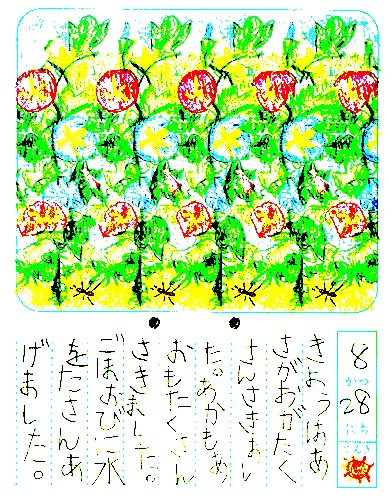 8
がつ
28
にち
きょうはあ
さがおがたく
さんさきまし
た。あかもあ
おもたくさん
さきました。
ごほおびに水
をたさんあ
げました。